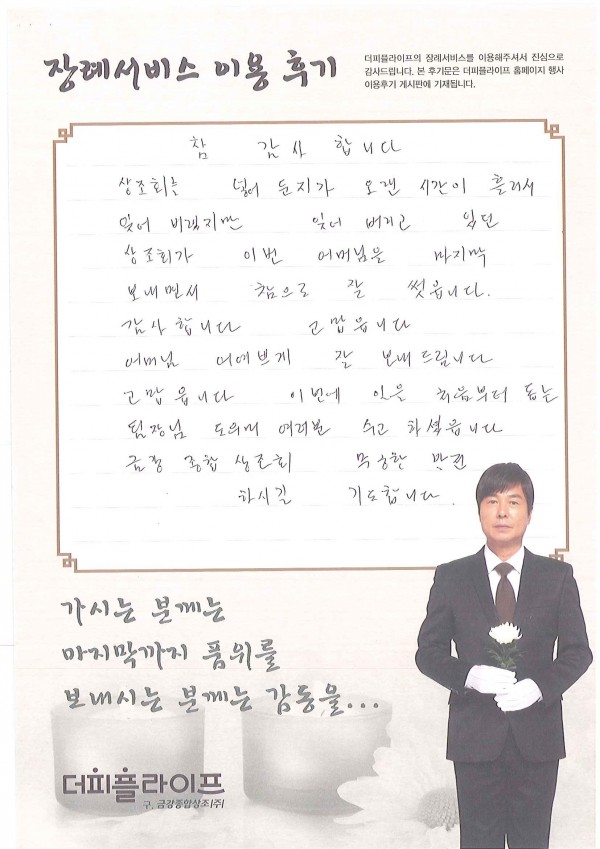 장례서비스 이용 후기
더피플라이프의 장례서비스를 이용해주셔서 진심으로
감사드립니다. 본 후기문은 더피플라이프 홈페이지 행사
이용후기 게시판에 기재됩니다.
참 감사 합니다
상조회를 넣어 둔지가 오랜 시간이 흘러서
잊어 버렸지만 잊어 버리고 있던
상조회가 이번 어머님을 마지막
보내면서 참으로 잘 썻읍니다.
감사합니다 고맙읍니다
어머님 어예쁘게 잘 보내드립니다
고맙읍니다 이번에 일은 처음부터 돕는
팀장님 도의미 여러분 수고 하셨읍니다
금강 종합 상조회 무궁한 발전
하시길 기도합니다.
가시는 분께는
마지막까지 품위를
보내시는 분께는 감동을...
더피플라이프
구. 금강종합상조(주)